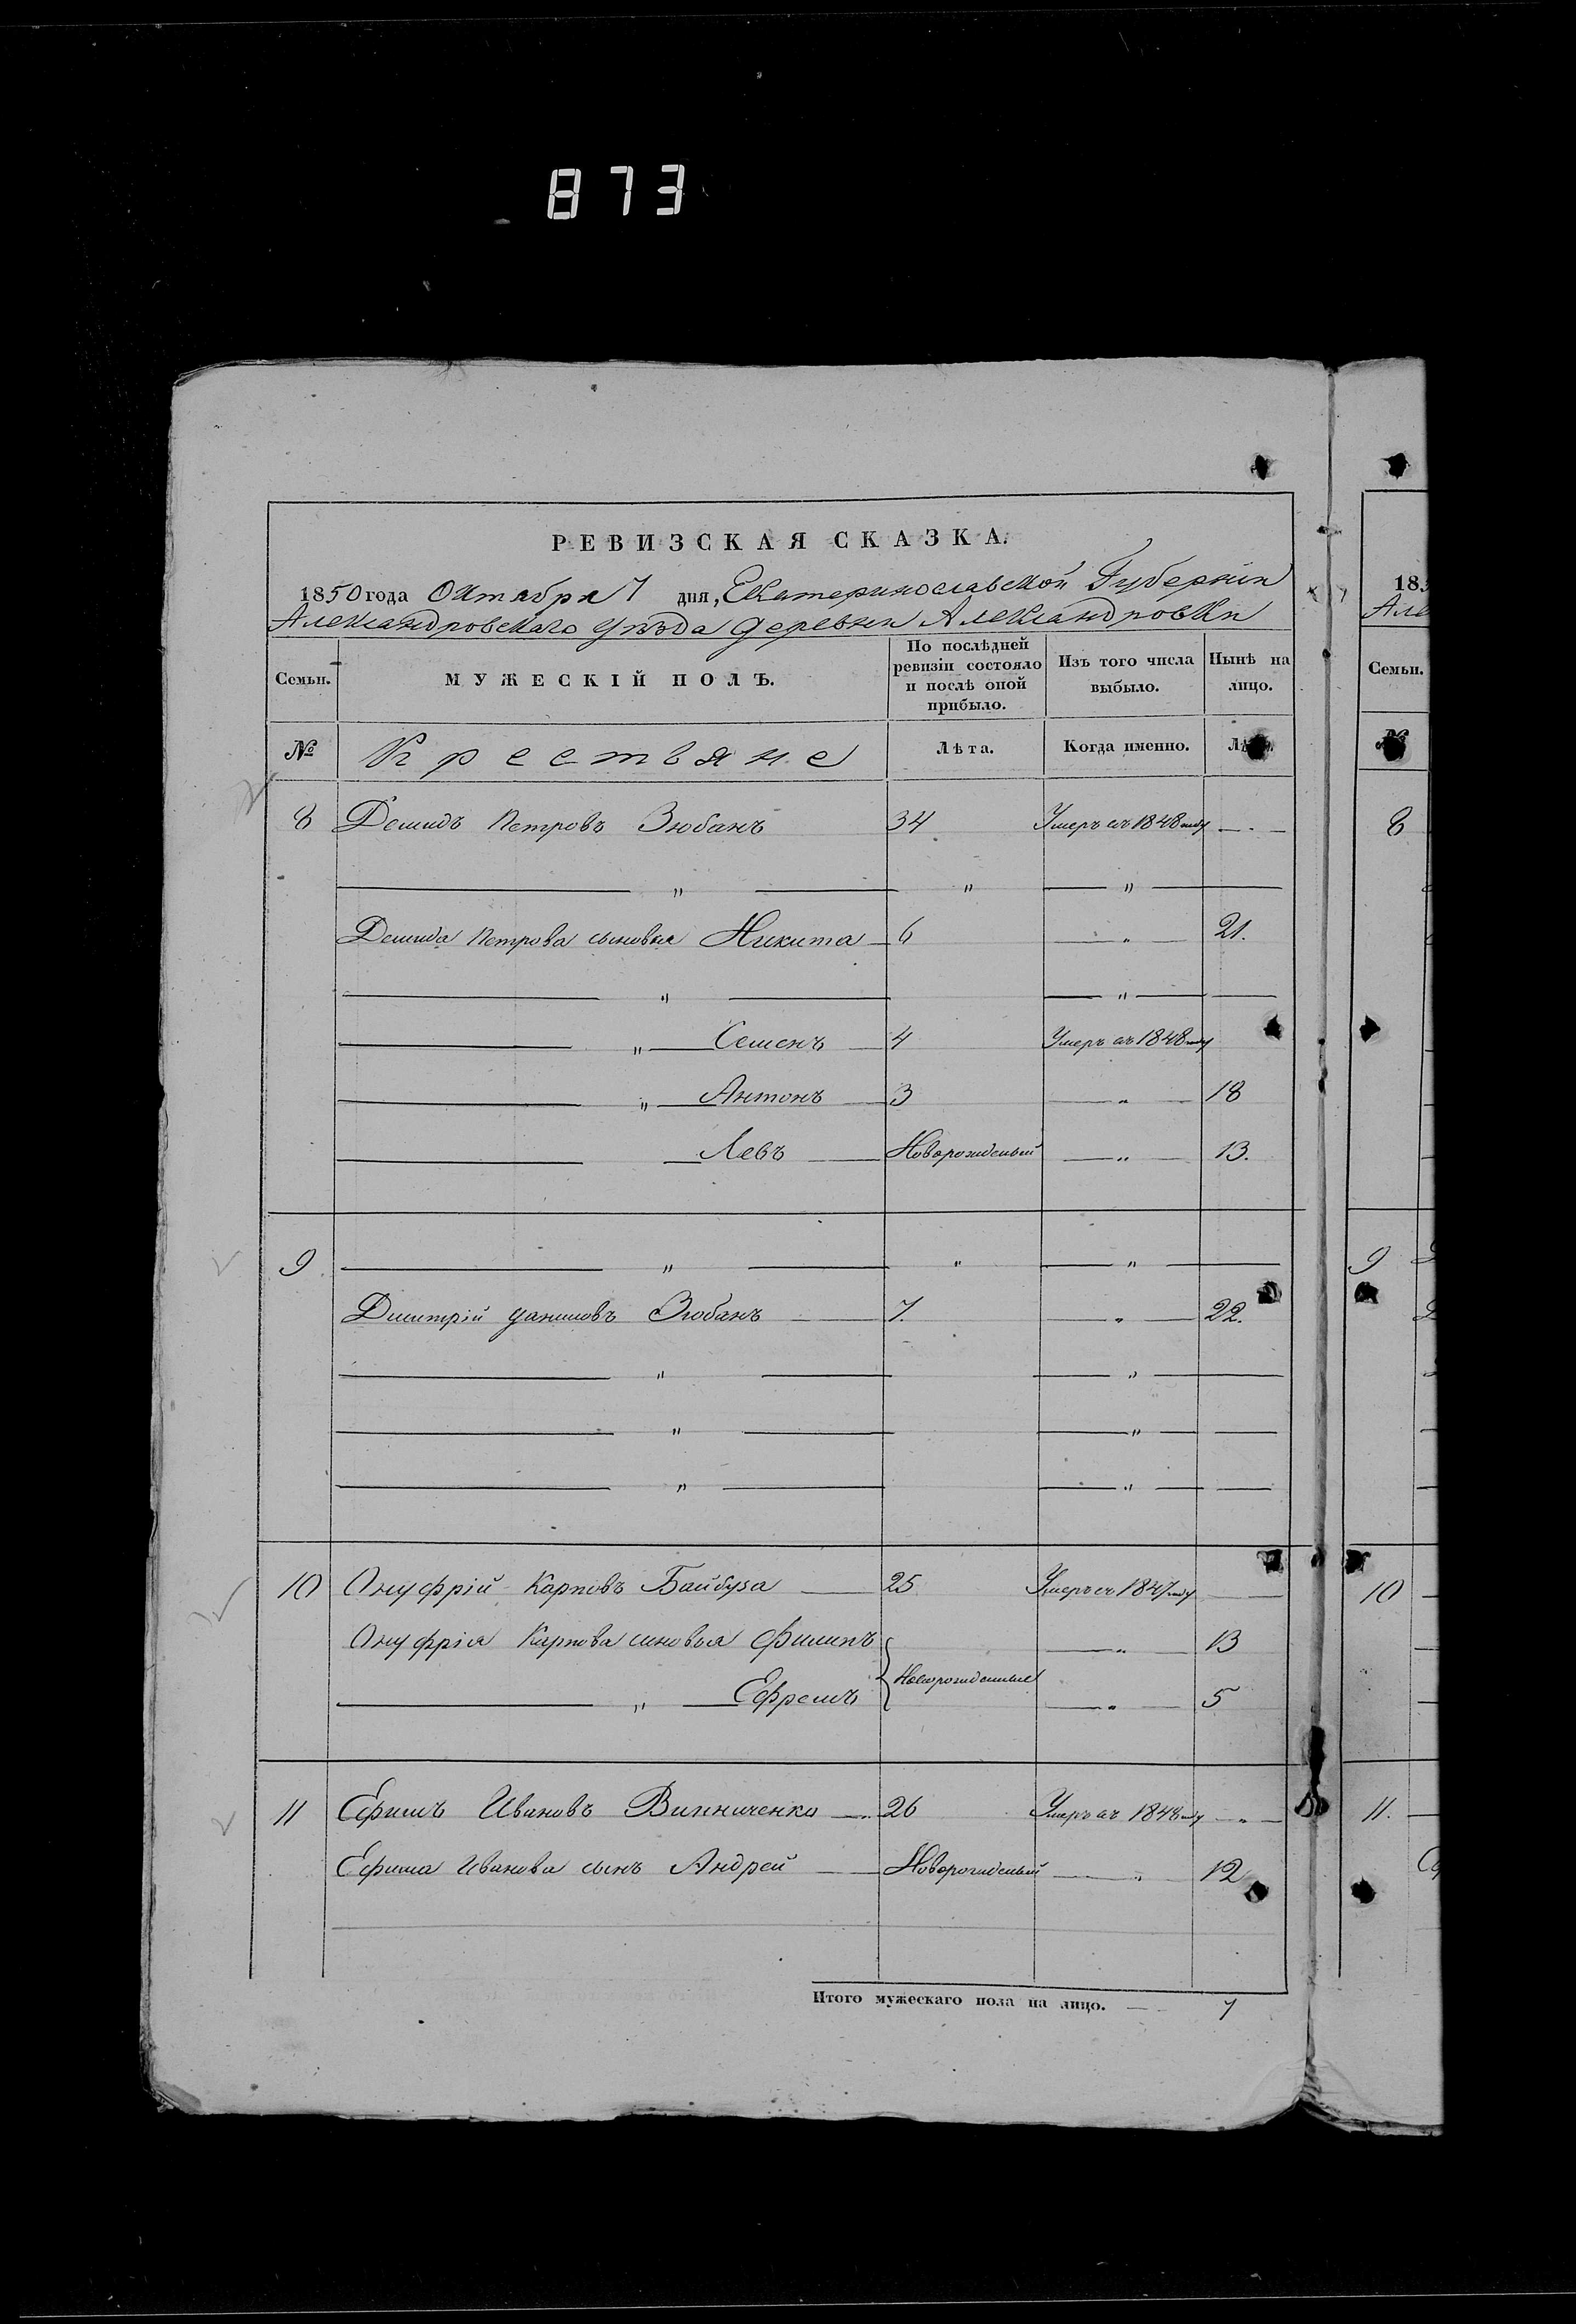 873
РЕВИЗСКАЯ СКАЗКА.
1850 года Октабря 7 дня, Екатеринославской Губерніи
Александровскаго уѣзда деревни Александровки
Семьи. МУЖЕСКІЙ ПОЛЪ. По послѣдней ревизіи состояло и послѣ оной прибыло. Изъ того числа выбыло. Нынѣ на лицо.
№ Крестьяне Лѣта. Когда именно. Лѣта.
8 Демидъ Петровъ Зюбанъ 34 Умеръ въ 1848 году
Демида Петрова сыновья Никита 6 " 21.
" Семенъ 4 Умеръ въ 1848 году
" Антонъ 3 " 18
Левъ Новорожденый " 13.
9 " " "
Дмитрій Зюбанъ 7. " 22.
10 Онуфрій Карповъ Байбуза 25 Умеръ въ 1847 году
Онуфрія Карпова сыновья Филипъ " 13
Новорожденные
" Ефремъ " 5
11 Ефимъ Ивановъ Винниченко 26 Умеръ въ 1848 году "
Ефима Иванова сынъ Андрей Новорожденый " 12
Итого мужескаго пола на лицо. 7
185
Але
Семьи.
№
8
9
10
11.